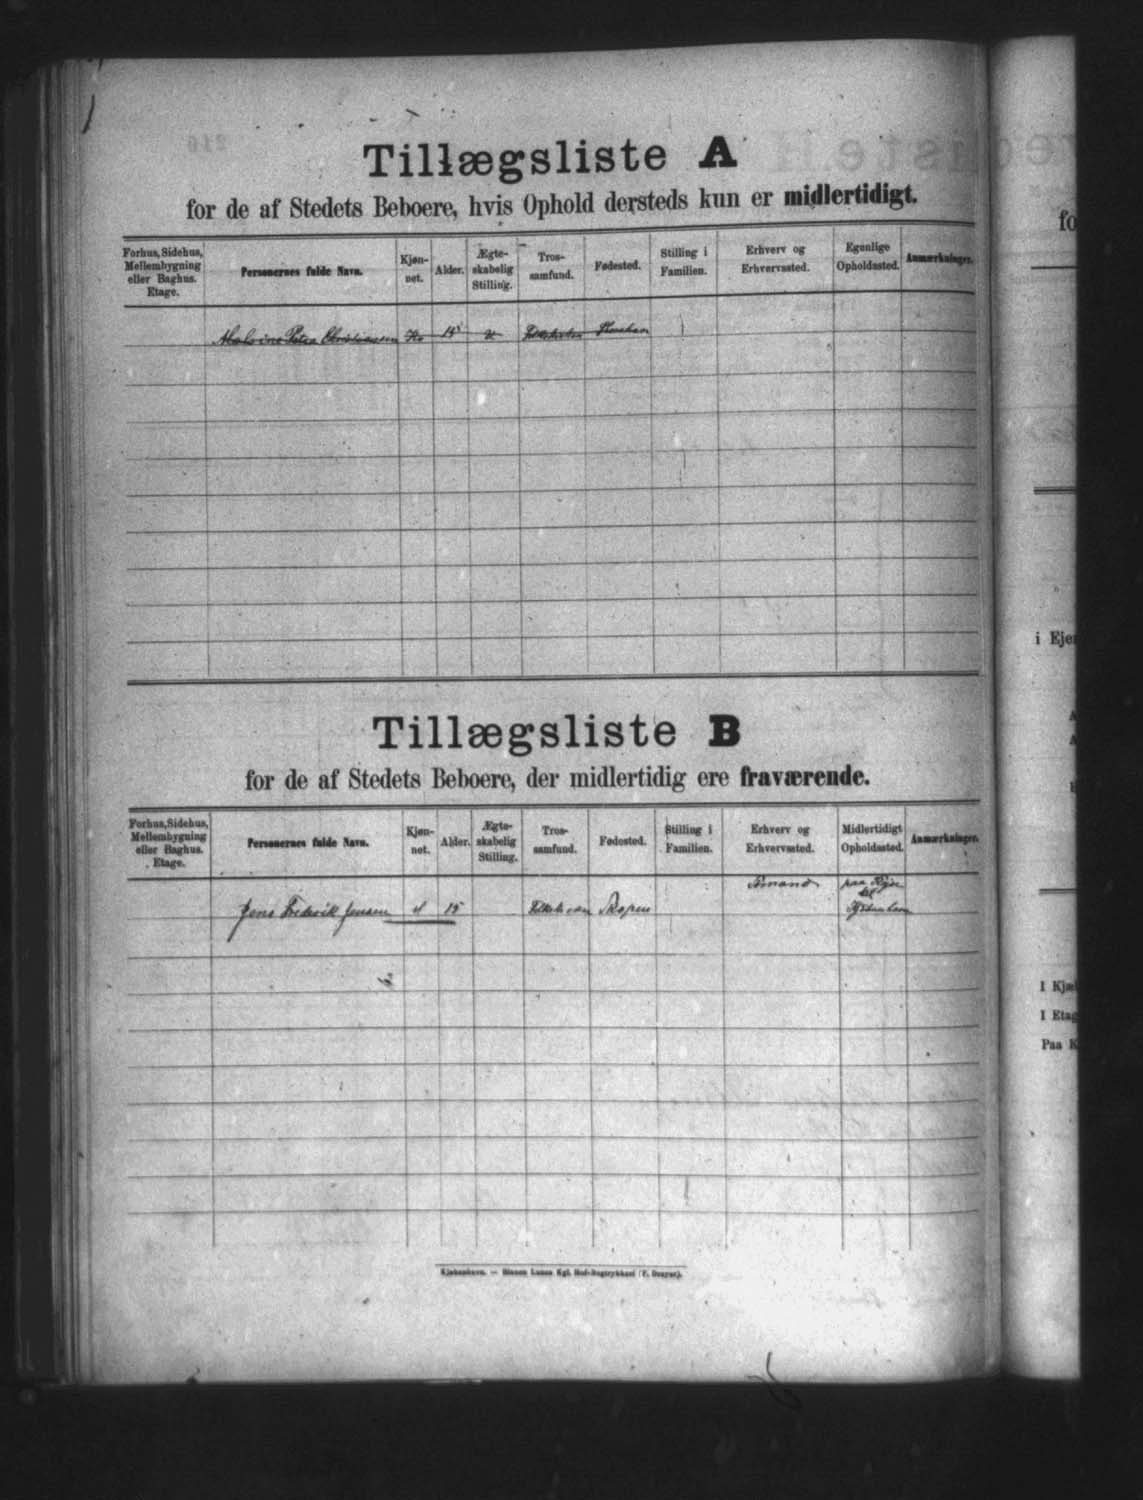 Tillægsliste A
for de af Stedets Beboere, hvis Ophold dersteds kun er midlertidigt.
Forhus, Sidehus, Mellembygning eller Baghus. Etage.
Personernes fulde Navn.
Kjøn-net.
Alder.
Ægte-skabelig Stilling.
Tros-samfund.
Fødested.
Stilling i Familien.
Erhverv og Erhvervssted.
Egenlige Opholdssted.
Anmærkninger.
Petra Christiansen 15
Tillægsliste B
for de af Stedets Beboere, der midlertidig ere fraværende.
Forhus, Sidehus, Mellembygning eller Baghus. Etage.
Personernes fulde Navn.
Kjøn-net.
Alder.
Ægte-skabelig Stilling.
Tros-samfund.
Fødested.
Stilling i Familien.
Erhverv og Erhvervssted.
Midlertidigt Opholdssted.
Anmærkninger.
Sømand paa Rejse
til
Jens Frederik Jensen 15
Kjøbenhavn. — Bianco Lunos Kgl. Hof-Bogtrykkeri (F. Dreyer).
fo
i Eje
I Kjæl
I Etag
Paa K